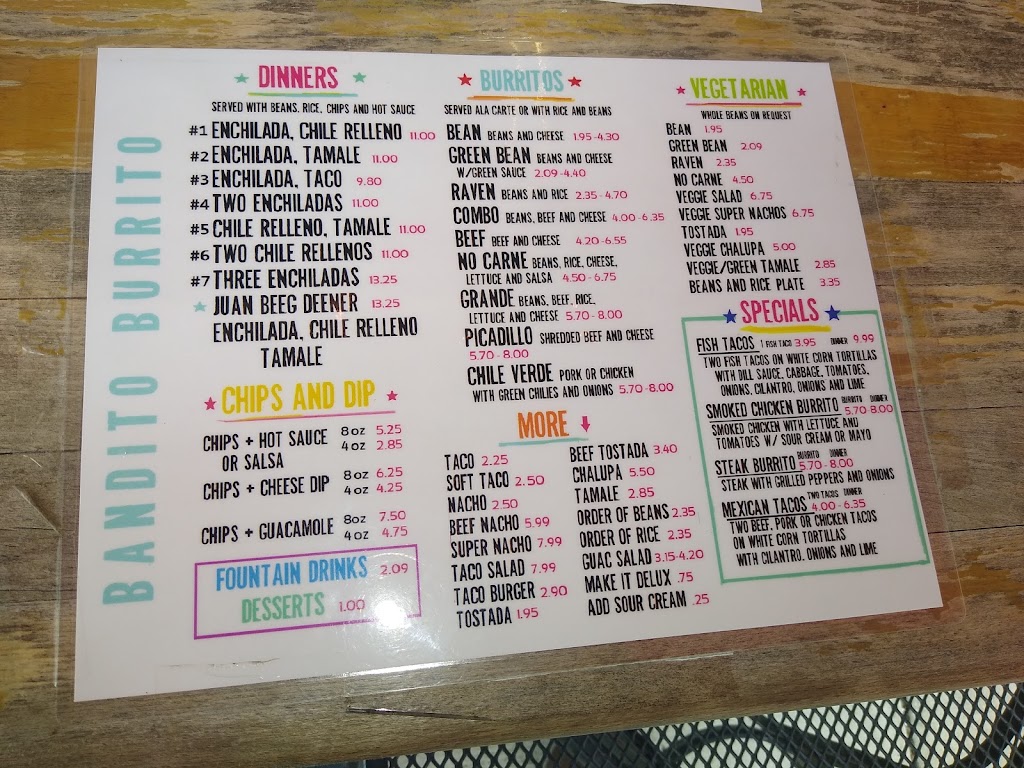 BANDITO BURRITO
DINNERS
SERVED WITH BEANS, RICE, CHIPS AND HOT SAUCE
#1 ENCHILADA, CHILE RELLENO 11.00
#2 ENCHILADA, TAMALE 11.00
#3 ENCHILADA, TACO 9.80
#4 TWO ENCHILADAS 11.00
#5 CHILE RELLENO, TAMALE 11.00
#6 TWO CHILE RELLENOS 11.00
#7 THREE ENCHILADAS 13.25
JUAN BEEG DEENER 13.25
ENCHILADA, CHILE RELLENO
TAMALE
CHIPS AND DIP
CHIPS + HOT SAUCE 8oz 5.25
OR SALSA 4oz 2.85
CHIPS + CHEESE DIP 8oz 6.25
4oz 4.25
CHIPS + GUACAMOLE 8oz 7.50
4oz 4.75
FOUNTAIN DRINKS 2.09
DESSERTS 1.00
BURRITOS
SERVED ALA CARTE OR WITH RICE AND BEANS
BEAN BEANS AND CHEESE 1.95-4.30
GREEN BEAN BEANS AND CHEESE
W/GREEN SAUCE 2.09-4.40
RAVEN BEANS AND RICE 2.35-4.70
COMBO BEANS, BEEF AND CHEESE 4.00-6.35
BEEF BEEF AND CHEESE 4.20-6.55
NO CARNE BEANS, RICE, CHEESE,
LETTUCE AND SALSA 4.50-6.75
GRANDE BEANS, BEEF, RICE,
LETTUCE AND CHEESE 5.70-8.00
PICADILLO SHREDDED BEEF AND CHEESE
5.70-8.00
CHILE VERDE PORK OR CHICKEN
WITH GREEN CHILIES AND ONIONS 5.70-8.00
MORE
TACO 2.25
SOFT TACO 2.50
NACHO 2.50
BEEF NACHO 5.99
SUPER NACHO 7.99
TACO SALAD 7.99
TACO BURGER 2.90
TOSTADA 1.95
BEEF TOSTADA 3.40
CHALUPA 5.50
TAMALE 2.85
ORDER OF BEANS 2.35
ORDER OF RICE 2.35
GUAC SALAD 3.15-4.20
MAKE IT DELUX .75
ADD SOUR CREAM .25
VEGETARIAN
WHOLE BEANS ON REQUEST
BEAN 1.95
GREEN BEAN 2.09
RAVEN 2.35
NO CARNE 4.50
VEGGIE SALAD 6.75
VEGGIE SUPER NACHOS 6.75
TOSTADA 1.95
VEGGIE CHALUPA 5.00
VEGGIE/GREEN TAMALE 2.85
BEANS AND RICE PLATE 3.35
SPECIALS
FISH TACOS 1 FISH TACO 3.95 DINNER 9.99
TWO FISH TACOS ON WHITE CORN TORTILLAS
WITH DILL SAUCE, CABBAGE, TOMATOES,
ONIONS, CILANTRO, ONIONS AND LIME
SMOKED CHICKEN BURRITO BURRITO DINNER 5.70-8.00
SMOKED CHICKEN WITH LETTUCE AND
TOMATOES W/ SOUR CREAM OR MAYO
STEAK BURRITO BURRITO DINNER 5.70-8.00
STEAK WITH GRILLED PEPPERS AND ONIONS
MEXICAN TACOS TWO TACOS DINNER 4.00-6.35
TWO BEEF, PORK OR CHICKEN TACOS
ON WHITE CORN TORTILLAS
WITH CILANTRO, ONIONS AND LIME